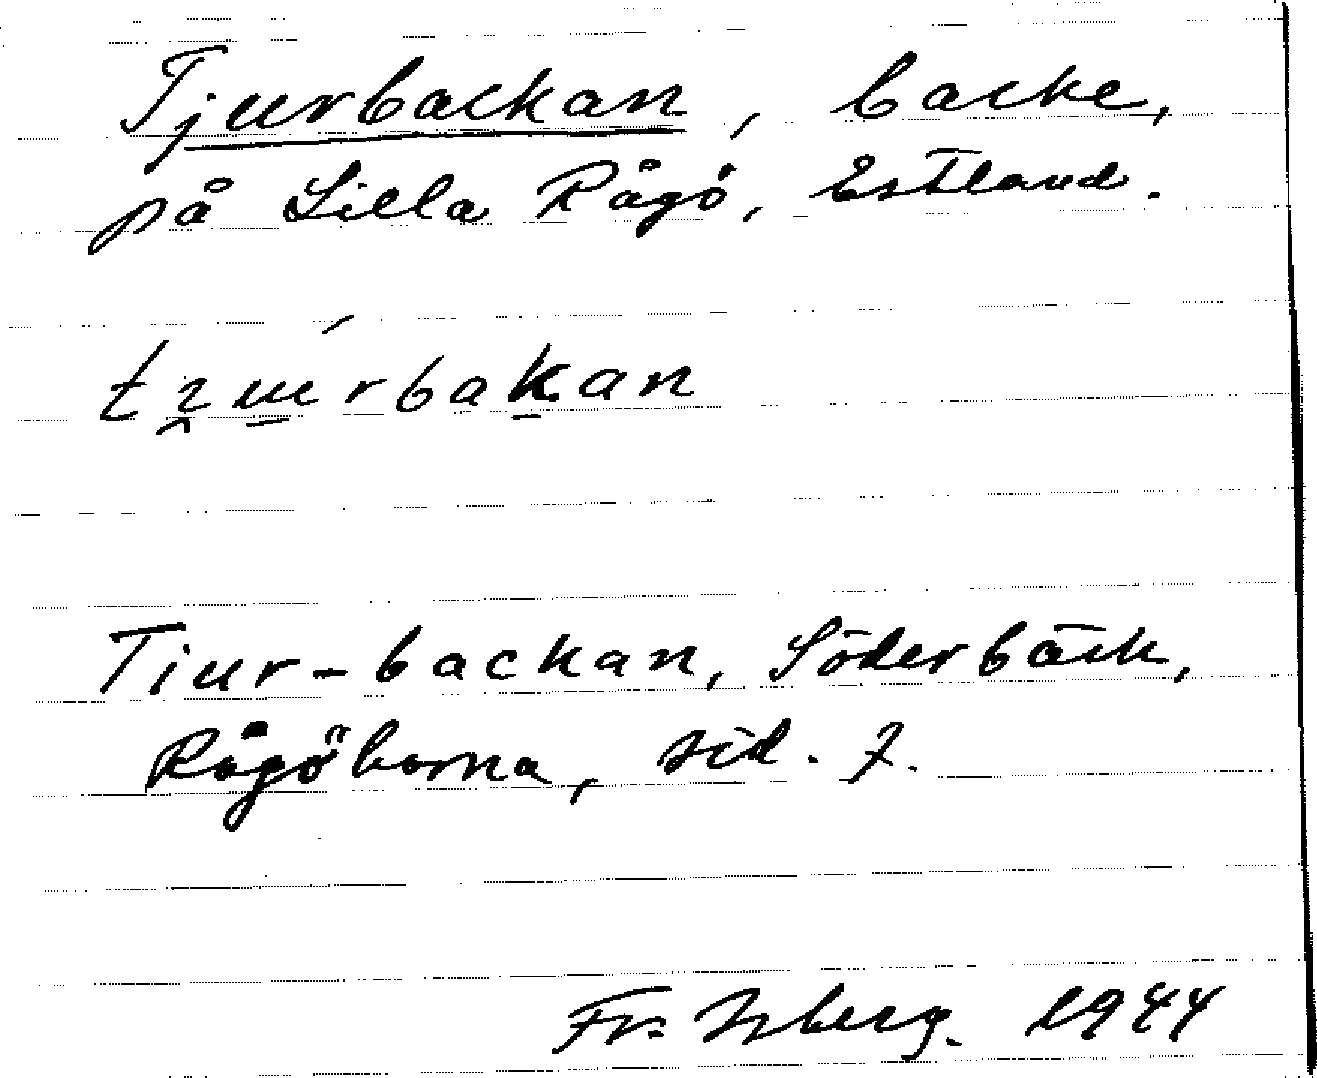 Tjurbackan, backe,
på Lilla Rågö, Estland.
Tiur-backan, Söderbäck,
Rågöborna, sid. 7.
Fr. 1944